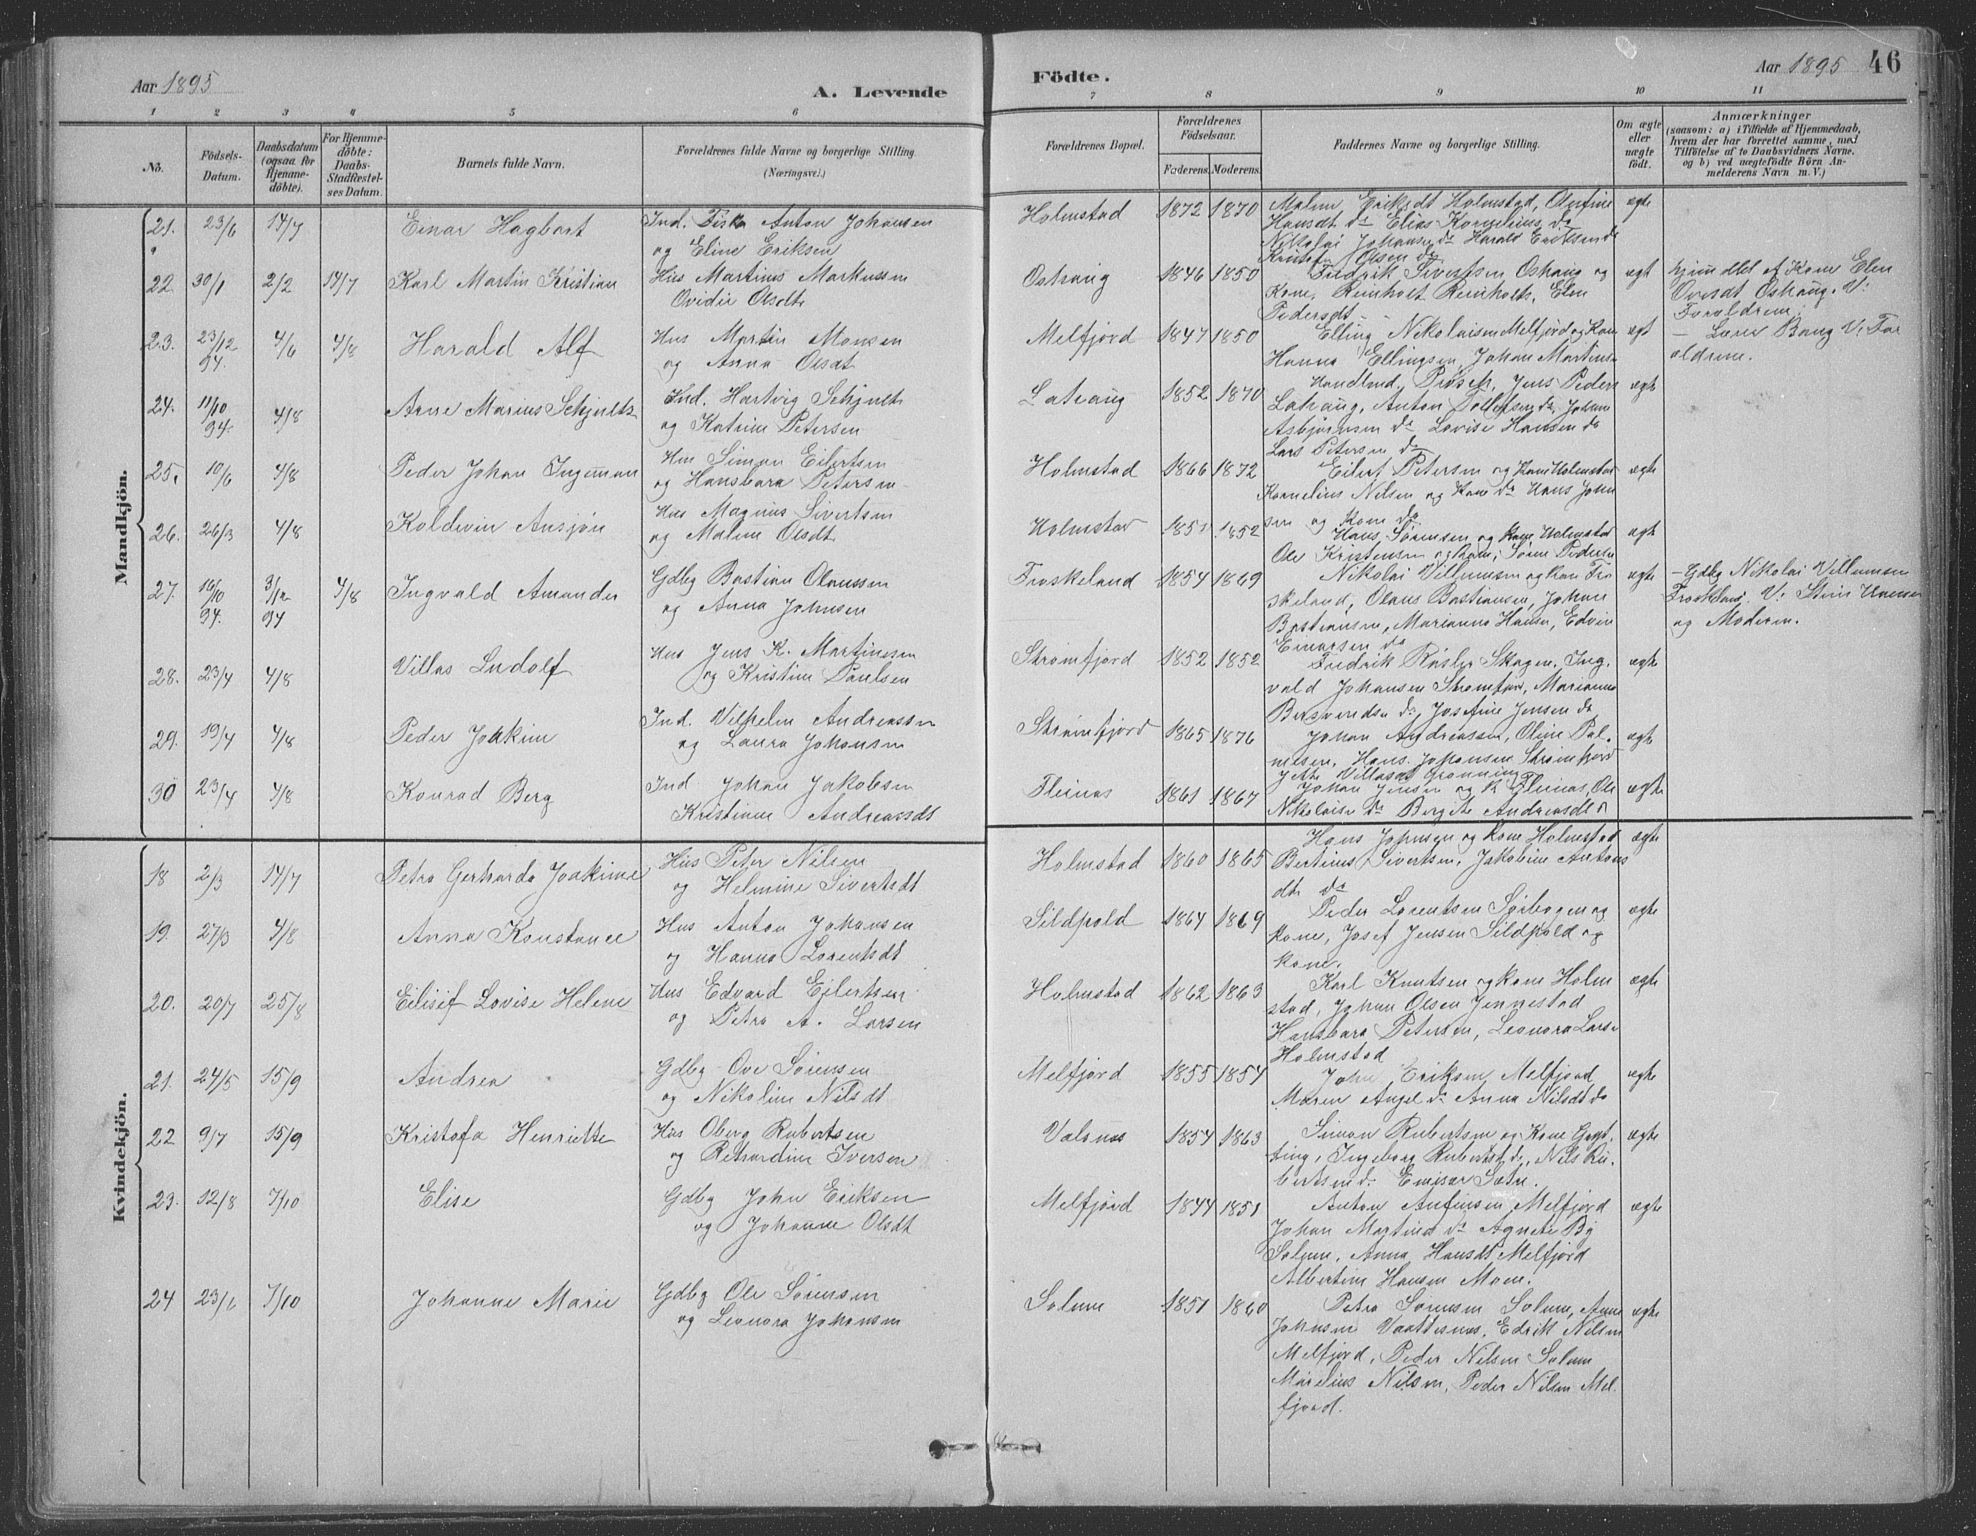 Aar 1895
A. Levende
Födte.
Aar 1895
46
1 2 3 4 5 6 7 8 9 10 11
No.
Födsels-Datum.
Daabsdatum (ogsaa for Hjemmedöbte).
For Hjemmedöbte: Daabs-Stadfæstelses Datum.
Barnets fulde Navn.
Forældrenes fulde Navne og borgerlige Stilling.
(Næringsvei.)
Forældrenes Bopæl.
Forældrenes Födselsaar.
Faderens. Moderens.
Faddernes Navne og borgerlige Stilling.
Om ægte eller uægte födt.
Anmærkninger
(saasom: a) i Tilfælde af Hjemmedaab, hvem der har forrettet samme, med Tilföielse af to Daabsvidners Navne, og b) ved uægtefödte Börn Anmelderens Navn m. V.)
Mandkjön.
21. 23/6 14/7 Einar Hagbart Ind. Fisk Anton Johansen og Eline Eriksen Holmstad 1872 1870 Malin Eriksdt Holmstad, Hansdt do Elias Kornelius do Nikolai Johansen do Harald Eriksen do Kristofer Olsen do ægte
22. 30/1 2/2 14/7 Karl Martin Kristian Hus Martinus Markussen Olsdt Oshaug 1846 1850 Fredrik Sivertsen Oshaug og Kone, Reinholt Reinholts, Elen Pedersdt ægt hjemmedbt af Kone Elen Oshaug. V: Forældrene.
23. 23/12 94. 4/6 4/8 Harald Alf Hus Martin Monsen og Anna Olsdt Melfjord 1847 1850 Elling Nikolaisen Melfjord og Kone Hanna Ellingsen, Johan Martins ægt – Lærer Bang V. Forældrene.
24. 11/10 94. 4/8 Arne Marius Schjelts Ind. Hartvig Schjelts og Katrine Petersen Lahaug 1852 1870 Handlend. Jens Peders Lahaug, Anton Tollefsen do, Johan Asbjörnsen do Lovise Hansen do Lars Petersen do ægte
25. 10/6 4/8 Peder Johan Ingeman Hus Simon Eilertsen og Hansbara Petersen Holmstad 1866 1872 Eilert Petersen og Kone Holmstad Kornelius Nilsen og Kone do Hans Johnsen og Kone do ægte
26. 26/3 4/8 Koldevin Ansjön Hus Magnus Sivertsen og Malene Olsdt Holmstad 1851 1852 Hans Sörensen og Kone Holmstad Ole Kristensen og Kone, Sören Pedersen ægt
27. 10/10 94. 3/12 94 4/8 Ingvald Amandus Gdbg Bastian Olaussen og Anna Johnsen Froskeland 1854 1869 Nikolai Villumsen og Kone Froskeland, Olaus Bastiansen, Johan Bastiansen, Marianna Hansen, Edvin Einarsen do ægte – Gdbg Nikolai Villumsen Froskeland. V: Hansen og Moderen.
28. 23/4 4/8 Villas Ludolf Hus Jens K. Martinssen og Kristine Poulsen Stromfjord 1852 1852 Fredrik Röslev Skagen, Ingvald Johansen Stromfjord, Marianna do, Josefine Jensen do ægte
29. 19/4 4/8 Peder Joakim Ind. Vilhelm Andreassen og Laura Johansen Stromfjord 1865 1876 Johan Andreassen, Oline Hans Johansen Strömfjord Villasdt Grönning ægte
30 23/4 4/8 Konrad Berg Ind Johan Jakobsen Kristiane Andreasdt Fleines 1861 1867 Johan Jensen og K. Fleines, Ole Nikolaisen do Bergite Andreasdt do ægte
Kvindekjön.
18 2/3 14/7 Petra Gerharda Joakime Hus Peter Nilsen og Helmine Sivertsdt Holmstad 1860 1865 Hans Johnsen og Kone Holmstad Bertinus Sivertsen, Jakobine Antonsdt do ægte
19. 27/3 4/8 Anna Konstance Hus Anton Johansen og Hanna Lorentsdt Sildpold 1864 1869 Peder Lorentsen Sörbogen og Kone, Josef Jensen Sildpold og Kone. ægte
20. 20/7 25/8 Eilisif Lovise Helene Hus Edvard Eilertsen og Petra A. Larsen Holmstad 1862 1863 Karl Knutsen og Kone Holmstad, Johan Olsen Jennestad Hansbara Petersen, Leonora Larsen Holmstad ægte
21. 24/5 15/9 Andrea Gdbg Ove Sörensen og Nikoline Nilsdt Melfjord 1855 1854 John Eriksen Melfjord Maren Angel do Anna Nilsdt do ægte
22 9/7 15/9 Kristofa Henriette Hus Oberg Rubertsen og Rikardine Iversen Valsnes 1854 1863 Simon Rubertsen og Kone Ingeborg Rubertsdt do, Nils Rubertsen do Einar Sætre. ægte
23. 12/8 7/10 Elise Gdbg John Eriksen og Johanne Olsdt Melfjord 1844 1851 Anton Anfinsen Melfjord Johan Martin do Agnete By Solum, Anna Hansdt Melfjord Albertine Hansen Moen. ægte
24 23/6 7/10 Johanne Marie Gdbg Ole Sörensen og Leonora Johansen Solum 1851 1860 Petra Sörensen Solum, Anne Johnsen Vaattesnes, Edrik Nilsen Melfjord, Peder Nilsen Solum Marelius Nilsen, Peder Nilsen Melfjord. ægte